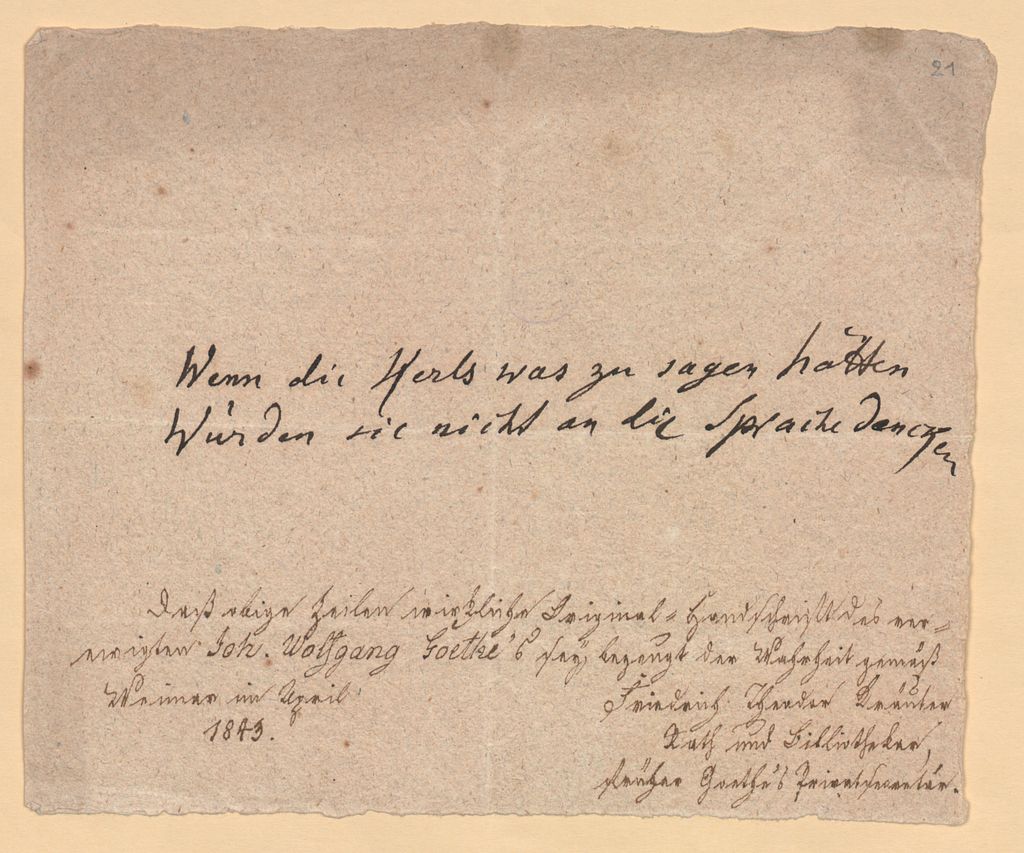 21
Wenn die Kerls was zu sagen hätten
Würden sie nicht an die Sprache dencken
Daß obige Zeilen wirkliche Original-Handschrift des ver-
ewigten Joh. Wolfgang Goethe's sey, bezeugt der Wahrheit gemäß
Weimar im April
1843.
Friedrich Theodor Kräuter
Rath und Bibliothekar,
früher Goethe's Privatsecretär.